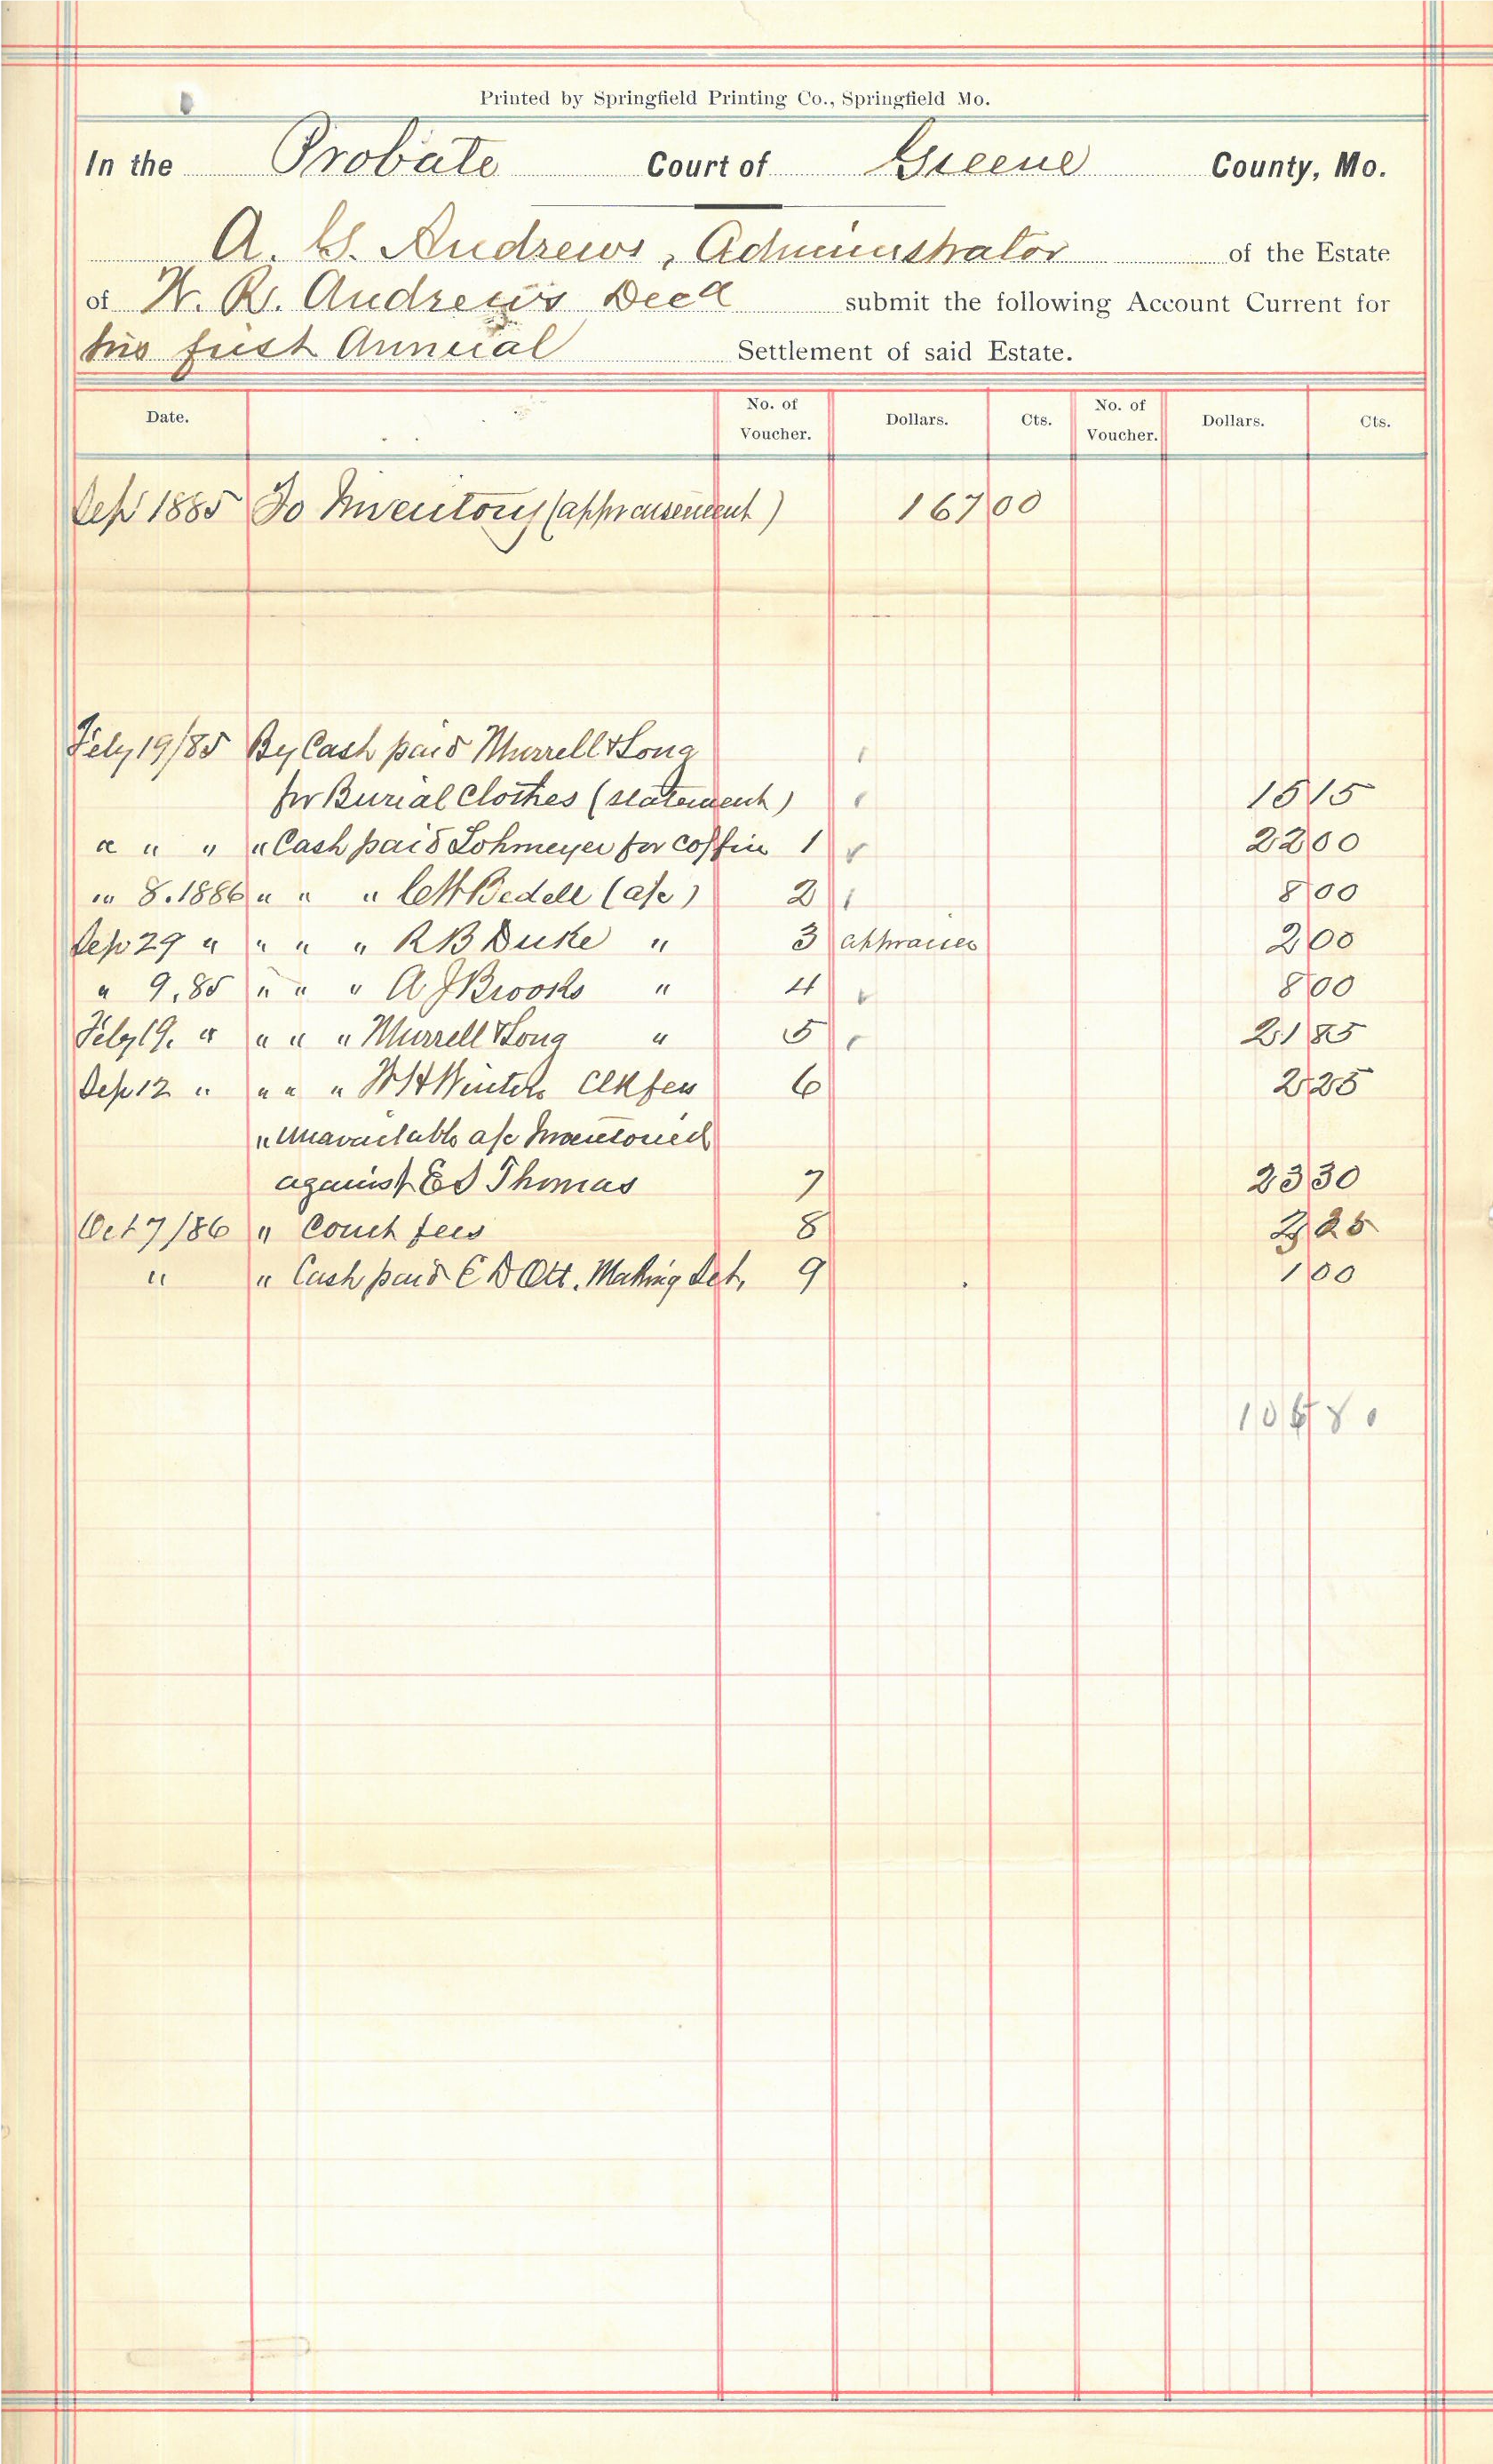 Printed by Springfield Printing Co., Springfield Mo.
In the Probate Court of Greene County, Mo.
A. G. Andrews, Administrator of the Estate
of W. R. Andrews Decd submit the following Account Current for
his first Annual Settlement of said Estate.
Date. No. of Voucher. Dollars. Cts. No. of Voucher. Dollars. Cts.
Sep 1885 To Inventory (appraisement) 167 00
July 19/85 By Cash paid Murrell & Long
for Burial Clothes (statement) 15 15
" " " " Cash paid Lohmeyer for Coffin 1 22 00
" 8. 1886 " " " Bedell (a/c) 2 8 00
Sep 29 " " " " R B Duke " 3 appraiser 2 00
" 9, 85 " " " A J Brooks " 4 8 00
July 19. " " " " Murrell & Long " 5 21 85
Sep 12 " " " " Clk fees 6 2 25
" Unavailable a/c Inventoried
against Ed Thomas 7 23 30
Oct 7/86 " Court fees 8 25
" " Cash paid E D Ott. Making Set, 9 1 00
80